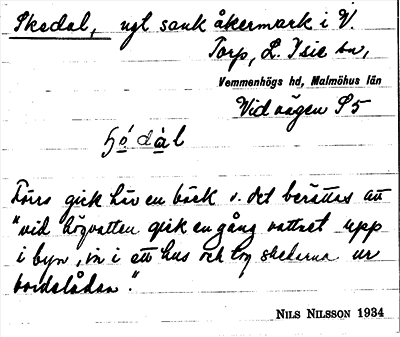 Skedal, ngt sank åkermark i V.
Torp, L. Isie sn,
Vemmenhögs hd, Malmöhus län
Vid vägen S5
Förrs gick här en bäck o. det berättas att
"vid högvatten gick en gång vattnet upp
i byn, in i ett hus och tog skedarna ur
bordslådan."
NILS NILSSON 1934